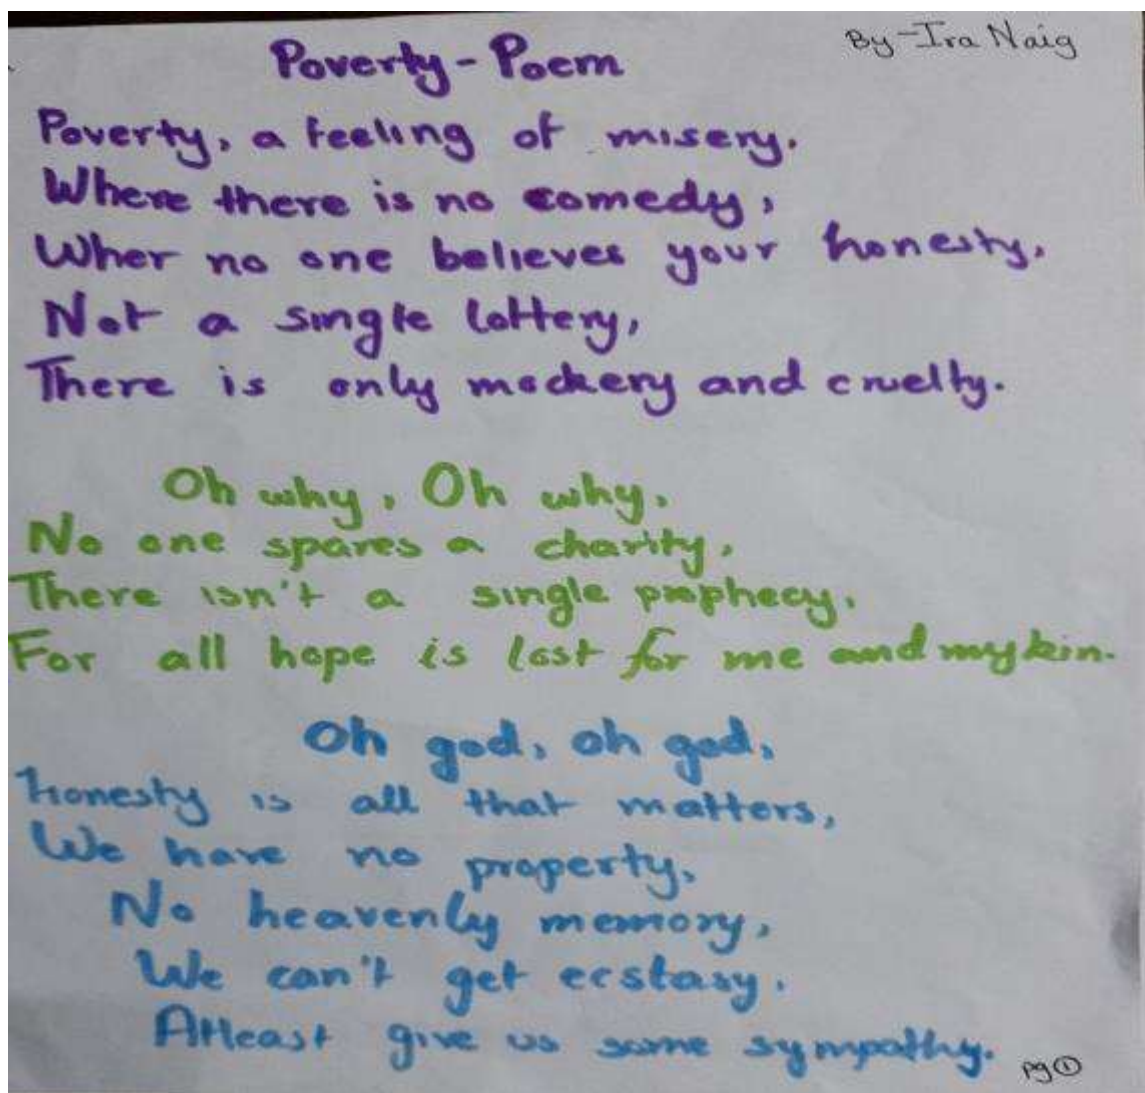 By-Ira Naig
Poverty-Poem
Poverty, a feeling of misery.
Where there is no comedy,
Wher no one believes your honesty,
Not a single lottery,
There is only mockery and cruelty.
Oh why, Oh why,
No one spares a charity,
There isn't a single prophecy,
For all hope is lost for me and my kin.
Oh god, oh god,
Honesty is all that matters,
We have no property,
No heavenly memory,
We can't get ecstasy.
Atleast give us some sympathy.
pg ①